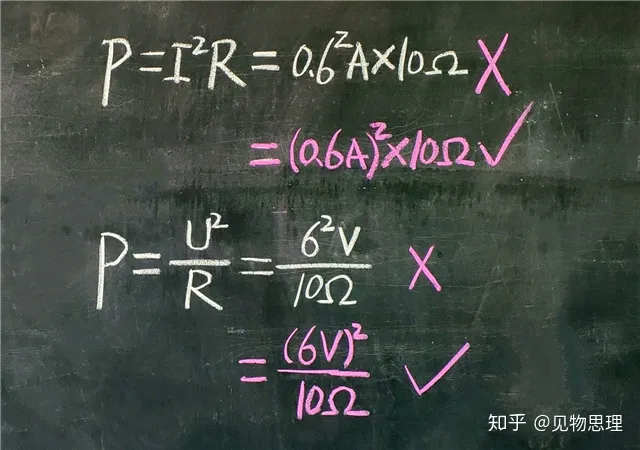 P=I²R=0.6²A×10Ω ×
=(0.6A)²×10Ω ✓
P=U²/R=6²V/10Ω ×
=(6V)²/10Ω ✓
知乎 @见物思理